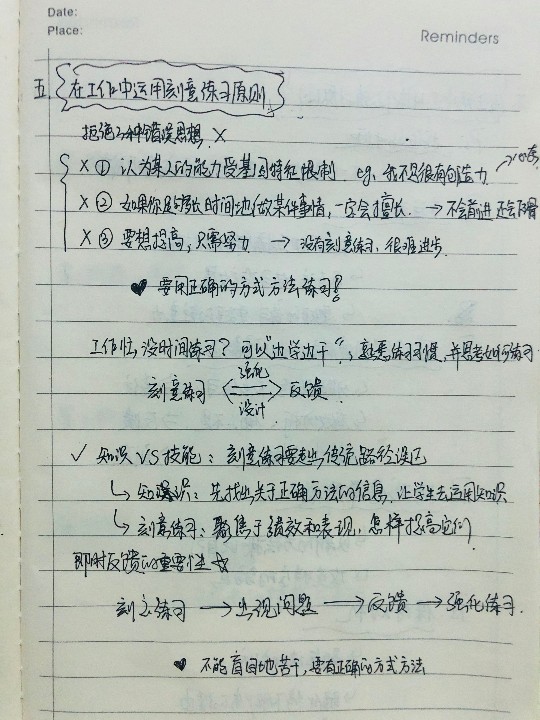 Date:
Place:
Reminders
五. 在工作中运用刻意练习原则
拒绝3种错误思想 ×
× ① 认为某人的能力受基因特征限制 eg. 我不是很有创造力
× ② 如果你足够长时间地做某件事情,一定会擅长. → 不会前进还会下滑
× ③ 要想提高,只需努力 → 没有刻意练习,很难进步.
♥ 要用正确的方式方法练习!
工作忙,没时间练习? 可以"边学边干",熟悉练习习惯,并思考如何练习
强化
刻意练习 反馈
设计
✓ 知识 VS 技能: 刻意练习要走出传统路径误区
↳ 知识: 先找出关于正确方法的信息,让学生去运用知识
↳ 刻意练习: 聚焦于绩效和表现,怎样提高它们
即时反馈的重要性 ☆
刻意练习 → 出现问题 → 反馈 → 强化练习.
♥ 不能盲目地苦干,要有正确的方式方法